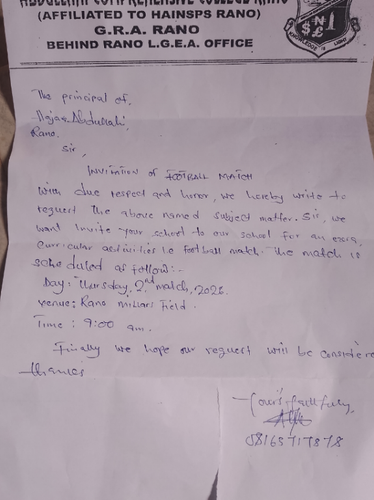 ABDULLAHI COMPREHENSIVE COLLEGE RANO
(AFFILIATED TO HAINSPS RANO)
G.R.A. RANO
BEHIND RANO L.G.E.A. OFFICE
The principal of,
Abdullahi
Rano.
Sir,
INVITATION OF FOOTBALL MATCH
With due respect and honor, we hereby write to
request the above named subject matter. Sir, we
want Invite your school to our school for an extra
Curricular activities i.e football match. The match is
scheduled as follow:-
Day: Thursday, 2nd match, 2026.
Venue: Rano Field.
Time : 9:00 am.
Finally we hope our request will be considere
thanks
Your's faithfully,
08165717878